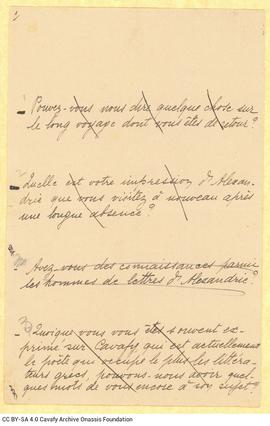 Pouvez-vous nous dire quelque chose sur
le long voyage dont vous êtes de retour?
Quelle est votre impression d'Alexan-
drie que vous visitez à nouveau après
une longue absence?
Avez-vous des connaissances parmi
les hommes de lettres d'Alexandrie?
Quoique vous vous êtes souvent ex-
primé sur Cavafy qui est actuellement
le poète que occupe le plus les littéra-
teurs grecs, pouvons-nous avoir quel-
ques mots de vous encore à son sujet?
CC BY-SA 4.0 Cavafy Archive Onassis Foundation